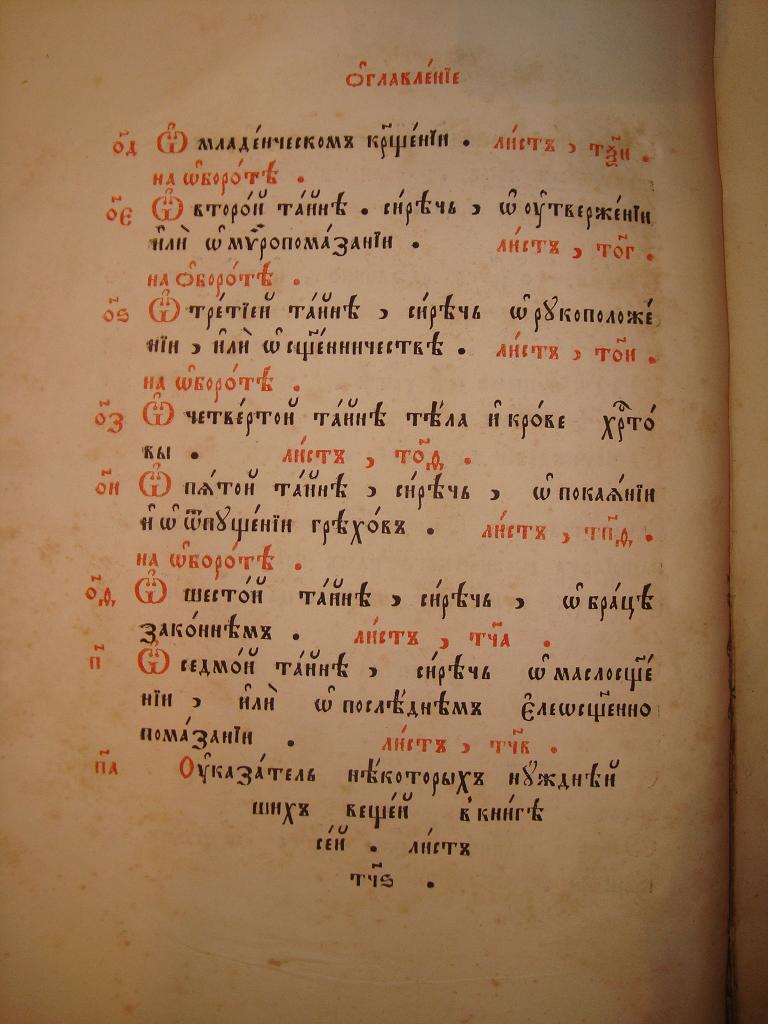 Ѡ҆главле́нїе
о҃д Ѿ младе́нческомъ кр҃ще́нїи . ли́стъ , т꙯ѯ҃и .
на ѡ҆боро́тѣ .
о҃є Ѿ второ́й та́йнѣ . си́рѣчь , ѡ҆ оу҆твержде́нїи
и҆лѝ ѡ҆ мѵропома́занїи . ли́стъ , то҃г .
на ѡ҆боро́тѣ .
о҃ѕ Ѿ тре́тїей та́йнѣ , си́рѣчь ѡ҆ рꙋкоположе́
нїи , и҆лѝ ѡ҆ сщ҃е́нничествѣ . ли́стъ , то҃и .
на ѡ҆боро́тѣ .
о҃з Ѿ четве́ртой та́йнѣ тѣ́ла и҆ кро́ве хрⷭ҇то́
вы . ли́стъ , то҃ѳ .
о҃и Ѿ пѧ́той та́йнѣ , си́рѣчь , ѡ҆ покаѧ́нїи
и҆ ѡ҆ ѿпꙋще́нїи грѣхо́въ . ли́стъ , тп҃д .
на ѡ҆боро́тѣ .
о҃ѳ Ѿ шесто́й та́йнѣ , си́рѣчь , ѡ҆ бра́цѣ
зако́ннѣмъ . ли́стъ , тч҃а .
п҃ Ѿ седмо́й та́йнѣ , си́рѣчь ѡ҆ маслосщ҃е́
нїи , и҆лѝ ѡ҆ послѣ́днѣмъ є҆леѡсщ҃е́нно
пома́занїи . ли́стъ , тч҃в .
п҃а Оу҆каза́тель нѣ́которыхъ нꙋ́жднѣй
шихъ веще́й в̾ кни́гѣ
се́й . ли́стъ
тч҃ѕ .